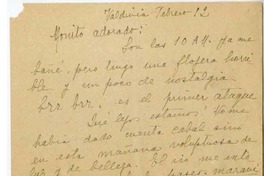 Valdivia Febrero 12
Monito adorado:
Son las 10 AM. ya me
bañé, pero tengo una flojera horri
ble y un poco de nostalgia
brr brr, es el primer ataque
Qué lejos estamos! No me
había dado cuenta cabal sino
en esta mañana voluptuosa de
luz y de belleza. El río me